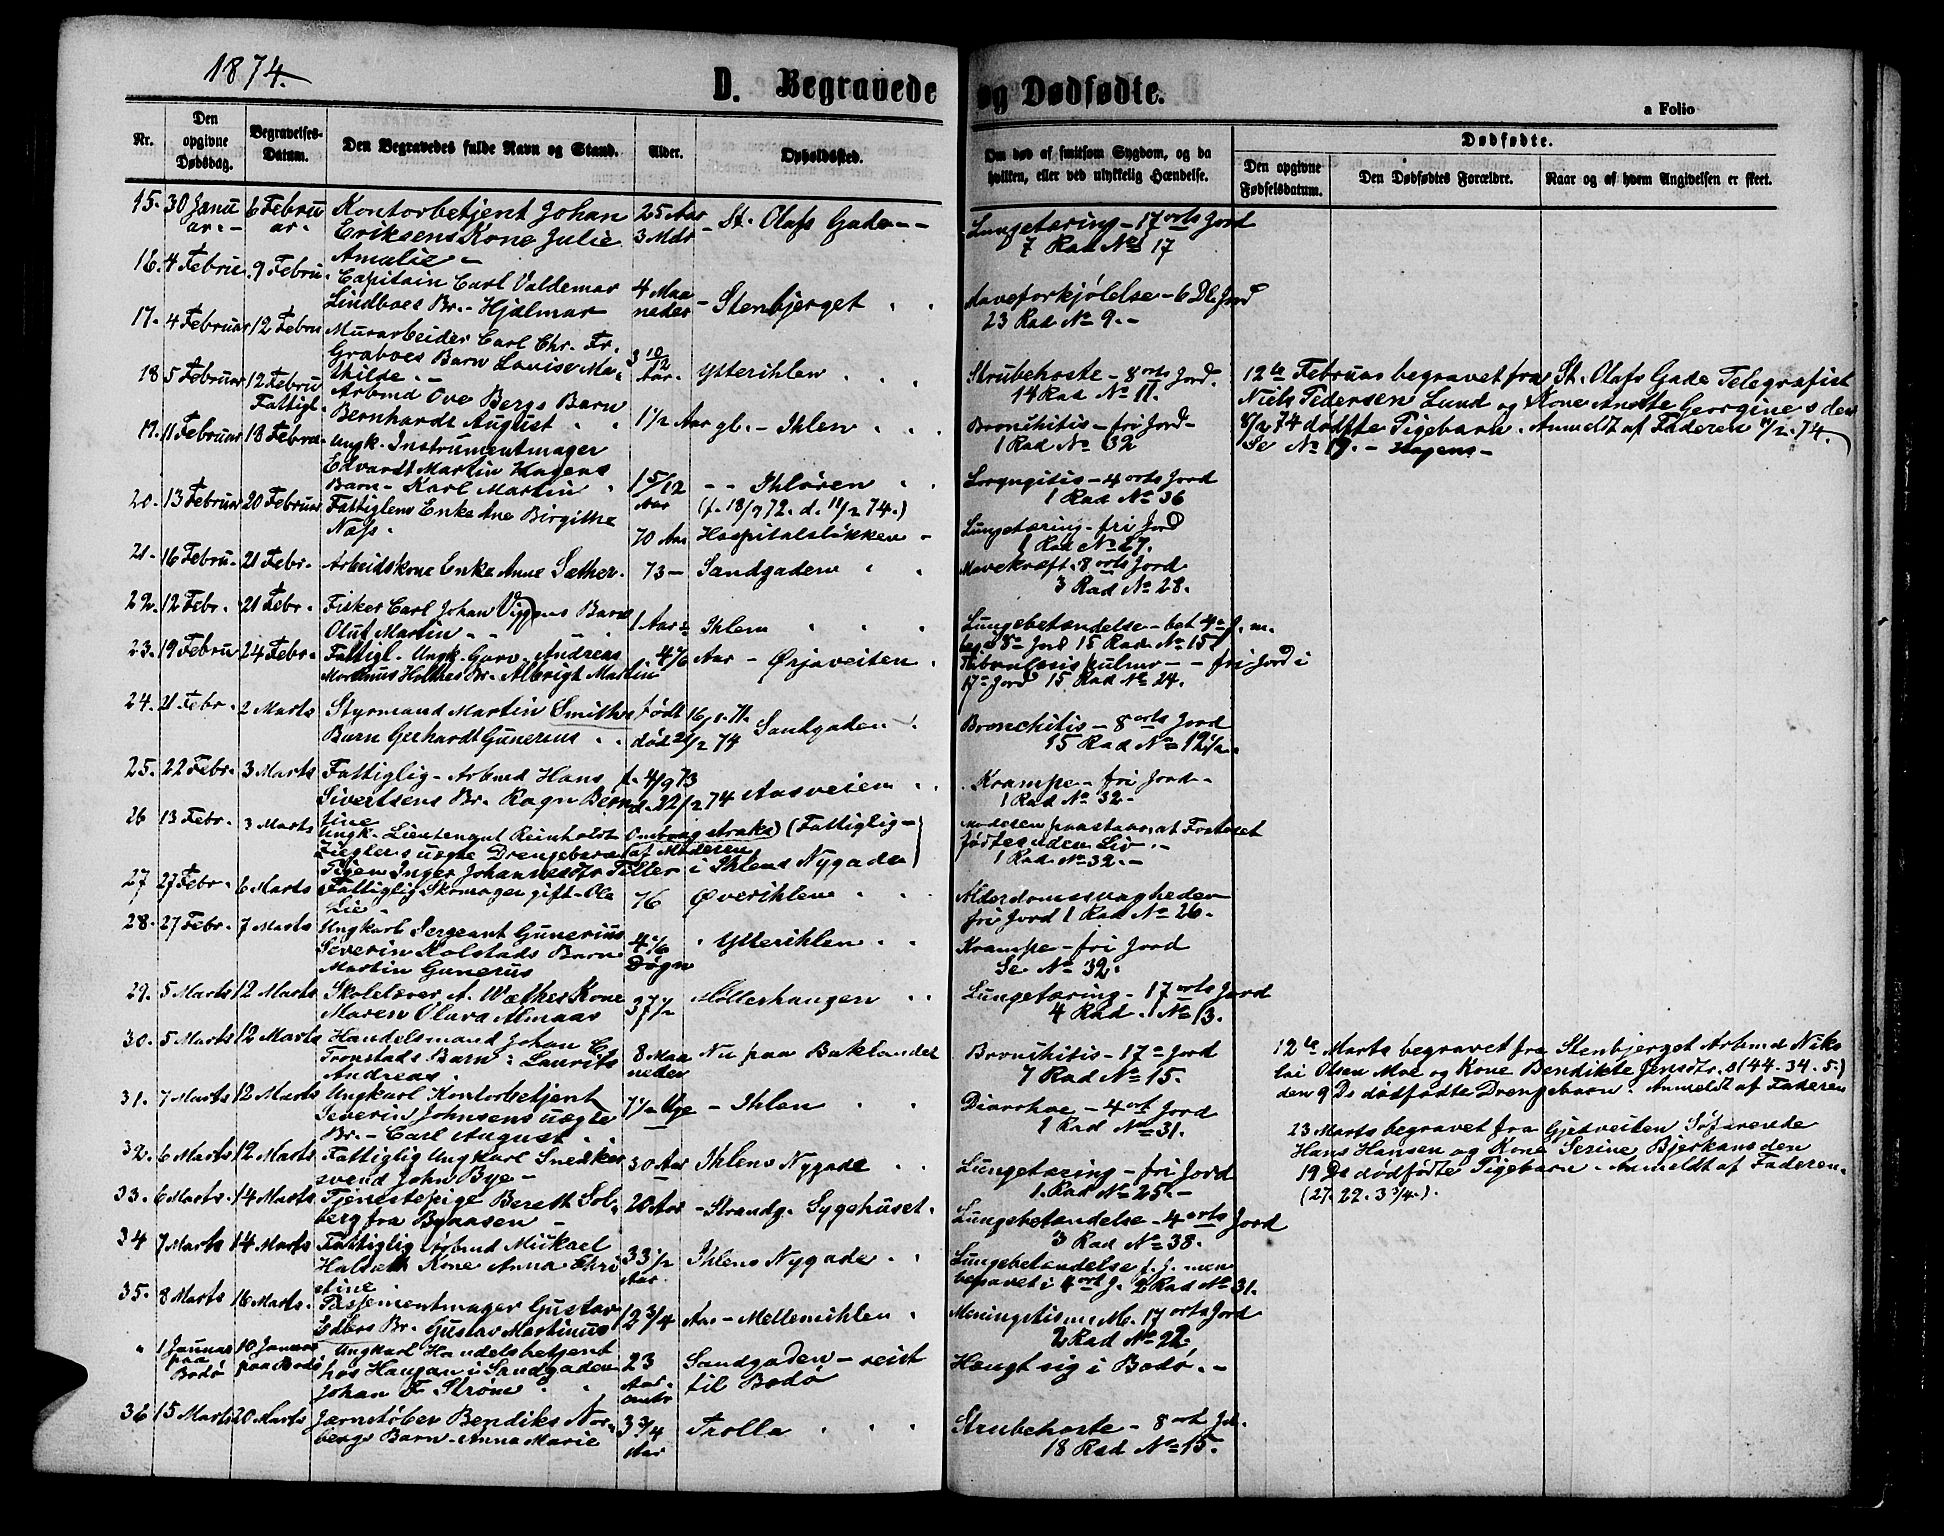 1874.
D. Begravede og Dødfødte.
a Folio
Nr. Den opgivne Dødsdag. Begravelses-Datum. Den Begravedes fulde Navn og Stand. Alder. Opholdssted. Om død af smitsom Sygdom, og da hvilken, eller ved ulykkelig Hændelse. Dødfødte. Den opgivne Fødselsdatum. Den Dødfødtes Forældre. Naar og af hvem Angivelsen er skeet.
15. 30 Janu 6 Febru Kontorbetjent Johan 25 Aar St. Olafs Gade Lungetæring - 17 orts Jord
ar. ar. Eriksens Kone Julie 3 Mdr 7 Rad No 17
Amalie
16. 4 Febru 9 Febru. Capitain Carl Valdemar 4 Maa
Lindboes Br. - Hjalmar neder - Stenbjerget Maveforkjølelse - 6 Dl. Jord
23 Rad No 9. -
17. 4 Februar 12 Febru Murarbeider Carl Chr. Fr.
Graboes Barn Lovise Ma- 3 10/12
thilde Aar. Ytterihlen Strubehoste - 8 orts Jord.
14 Rad No 11.
18 5 Februar 12 Febru Arbmd Ove Bergs Barn
Fattigl. Bernhardt August 1 1/2 Aar gl. - Ihlen Bronchitis - fri Jord -
1 Rad No 32
12te Februar begravet fra St. Olafs Gade Telegrafist
Niels Pedersen Lund og Kone Anette Georgines den
8/2 74 dødfødte Pigebarn. Anmeldt af Faderen 11/2 74.
Se No 19. - Hagens -
19. 11 Februar 18 Febru. Ungk. Instrumentmager
Edvardt Martin Hagens
Barn - Karl Martin 1 5/12 - - Ihlören Laryngitis - 4 orts Jord
Aar (f. 18/9 72. d. 11/2 74.) 1 Rad No 36
20. 13 Februar 20 Februar Fattiglens Enke Ane Birgithe
Næss. 70 Aar Hospitalsløkken - Lungetæring - fri Jord
1 Rad No 27.
21. 16 Febru. 21 Febr. Arbeidskone Enke Anne Sæther. 73 - Sandgaden Mavekræft. 8 orts Jord
3 Rad No 28.
22. 12 Febr. 21 Febr. Fisker Carl Johan Viggens Barn
Oluf Martin 1 Aar Ihlen Lungebetændelse - bet 4 f. m.
beg. 8 Jord 15 Rad No 15
23. 19 Febru 24 Febr. Fattigl. Ungk. Garv. Andreas 4/6 Aar - Ørjaveiten Tuberculosis pulmo - fri Jord i
Martinus Holtes Br. Albrigt Martin 17 Jord 15 Rad No 24.
24. 21 Febr. 2 Marts Styrmand Martin Smiths født 16/1. 71. Sandgaden Bronchitis - 8 orts Jord
Barn Gerhardt Gunerius død 21/2 74 15 Rad No 12 1/2.
25. 22 Febr. 3 Marts Fattiglig - Arbmd Hans f. 4/9 73 Krampe - fri Jord -
Sivertsens Br. Ragn. Bern d. 22/2 74 Aasveien 1 Rad No 32 -
tine
26 13 Febr. 3 Marts Ungk. Lieutenant Reinholdt Ombragt straks (Fattiglig - Moderen paastaar at Fosteret
Zieglers uægte Drengebarn (af Moderen fødtes uden Liv. -
Pigen Inger Johannesdtr Tiller i Ihlens Nygade) 1 Rad No 32. -
27 27 Febr. 6 Marts Fattiglig Skomager gift - Ole 76 Øverihlen Alderdomssvagheder
Lie. fri Jord 1 Rad No 26.
28. 27 Febr. 7 Marts Ungkarl Sergeant Gunerius
Severin Kolstads Barn 4 1/6 Ytterihlen Krampe - fri Jord
Martin Gunerus Døgn Se No 32.
29. 5 Marts 12 Marts Skolelærer A. Wæthes Kone 37 1/2 Møllerhaugen Lungetæring - 17 orts Jord
Maren Olava Almaas 4 Rad No 13.
30. 5 Marts 12 Marts Handelsmand Johan C.
Tronstads Barn: Laurits 8 Maa Nu paa Baklandet Bronchitis - 17 Jord
Andreas. neder 7 Rad No 15.
12te Marts begravet fra Stenbjerget Arbmd Niko
lai Olsen Moe og Kone Bendikte Jensdtr. s (44. 34. 5.)
den 9 Ds dødfødte Drengebarn. Anmeldt af Faderen
31. 7 Marts 12 Marts Ungkarl Kontorbetjent
Severin Johnsens uægte 7 1/2 Uge - Ihlen Diarrhoe - 4 ort Jord
Br. - Carl August 1 Rad No 31.
23 Marts begravet fra Gjetveiten Søfarende
Hans Hansen og Kone Serine Bjerkans den
19 Ds dødfødte Pigebarn - Anmeldt af Faderen.
(27. 22. 3 3/4.).
32. 6 Marts 12 Marts Fattiglig Ungkarl Snedker 30 Aar Ihlens Nygade Lungetæring - fri Jord
svend John Bye - 1. Rad No 25. -
33. 6 Marts 14 Marts Tjenestepige Bereth Sol- 20 Aar - Strandg. Sygehuset. Lungebetændelse - 4 orts Jord
berg fra Bynæsen - 3 Rad No 38.
34 7 Marts 14 Marts Fattiglig Arbmd Mickael
Halseth Kone Anna Chri 33 1/2 Ihlens Nygade Lungebetændelse f. J. men
stine. Aar. begravet i 4 ort J. 2 Rad No 31.
35. 8 Marts 16 Marts. Possementmager Gustav
Edlers Br. Gustav Martinus 12 3/4 Aar - Mellemihlen Meningitis m. M. 17 orts Jord
2 Rad No 22.
" 1 Januar 10 Januar Ungkarl Handelsbetjent
paa paa Bodø hos Haugan i Sandgaden 23 Sandgaden - reist Hængt sig i Bodø. -
Bodø Johan F. Strøm Aar. omtr til Bodø
36 15 Marts 20 Marts Jernstøber Bendiks Nor- 3 3/4 Trolla Strubehoste - 8 ort Jd.
bergs Barn - Anna Marie Aar 18 Rad No 15.